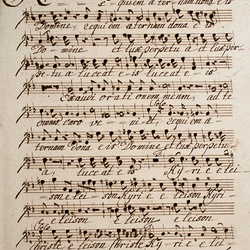 quiem aeternam dona eis
Domine, requiem aeternam dona eis
Domine et lux perpetua et lux per=
petua luceat eis luceat eis
Exaudi orationem meam, ad te
omnis caro veniet, requiem ae=
Solo
ternam dona eis Domine et lux perpetu=
a, luceat eis Kyrie elei=
son eleison Kyrie eleison Kyri
Solo
e eleison eleison
Christe eleison Christe Kyrie elei